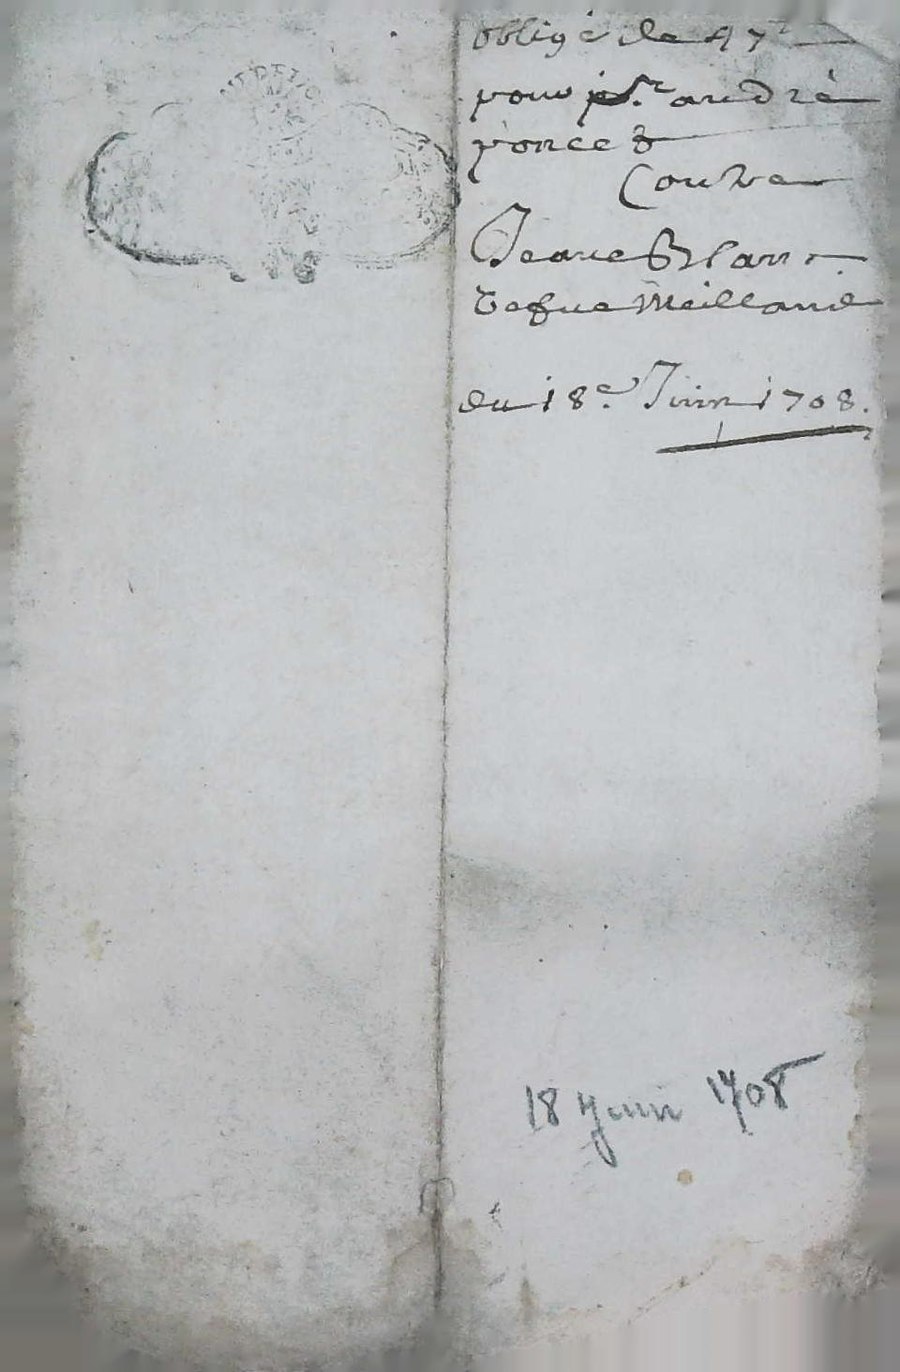 obligé de 47ᵗ
pour sʳ andré
poncet
Contre
Jeane Blanc
vefue Meilland
du 18ᵉ Juin 1708.
18 Juin 1708